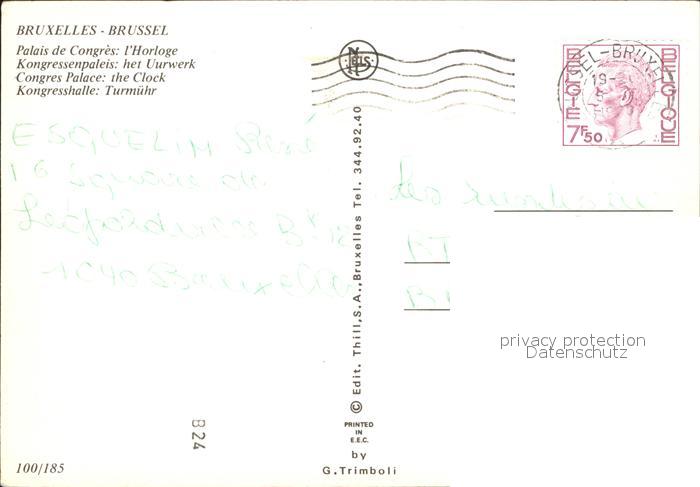 BRUXELLES - BRUSSEL
Palais de Congrès: l'Horloge
Kongressenpaleis: het Uurwerk
Congres Palace: the Clock
Kongresshalle: Turmühr
NELS
SEL-BRUXEL
19
BELGIE
BELGIQUE
7F50
ESQUELIN René
16 Square de
1040 Bruxelles
les
RT
privacy protection
Datenschutz
© Edit. Thill, S.A., Bruxelles Tel. 344.92.40
B24
PRINTED
IN
E.E.C.
by
G. Trimboli
100/185